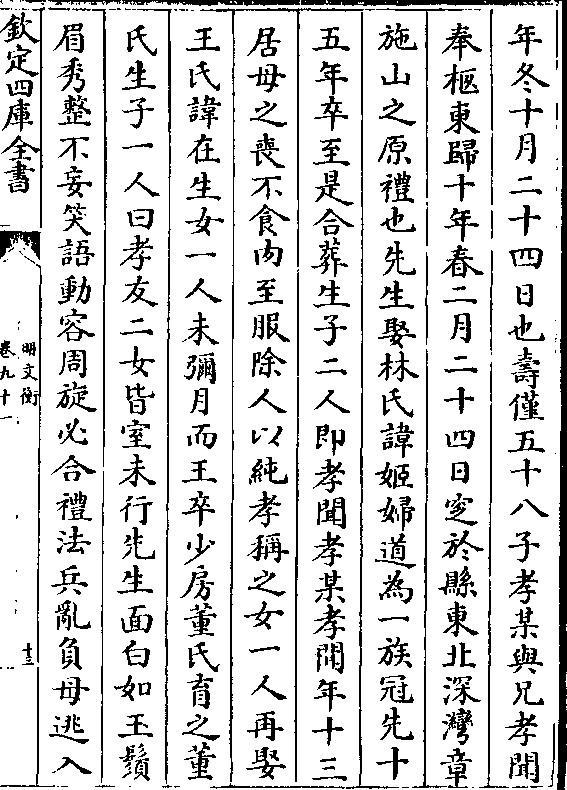 年冬十月二十四日也壽僅五十八子孝某與兄孝聞
奉柩東歸十年春二月二十四日窆於縣東北深灣章
施山之原禮也先生娶林氏諱姬婦道為一族冠先十
五年卒至是合葬生子二人即孝聞孝某孝聞年十三
居母之喪不食肉至服除人以純孝稱之女一人再娶
王氏諱在生女一人未彌月而王卒少房董氏育之董
氏生子一人曰孝友二女皆室未行先生面白如玉鬚
眉秀整不妄笑語動容周旋必合禮法兵亂負母逃入
欽定四庫全書
明文衡
卷九十一
十三